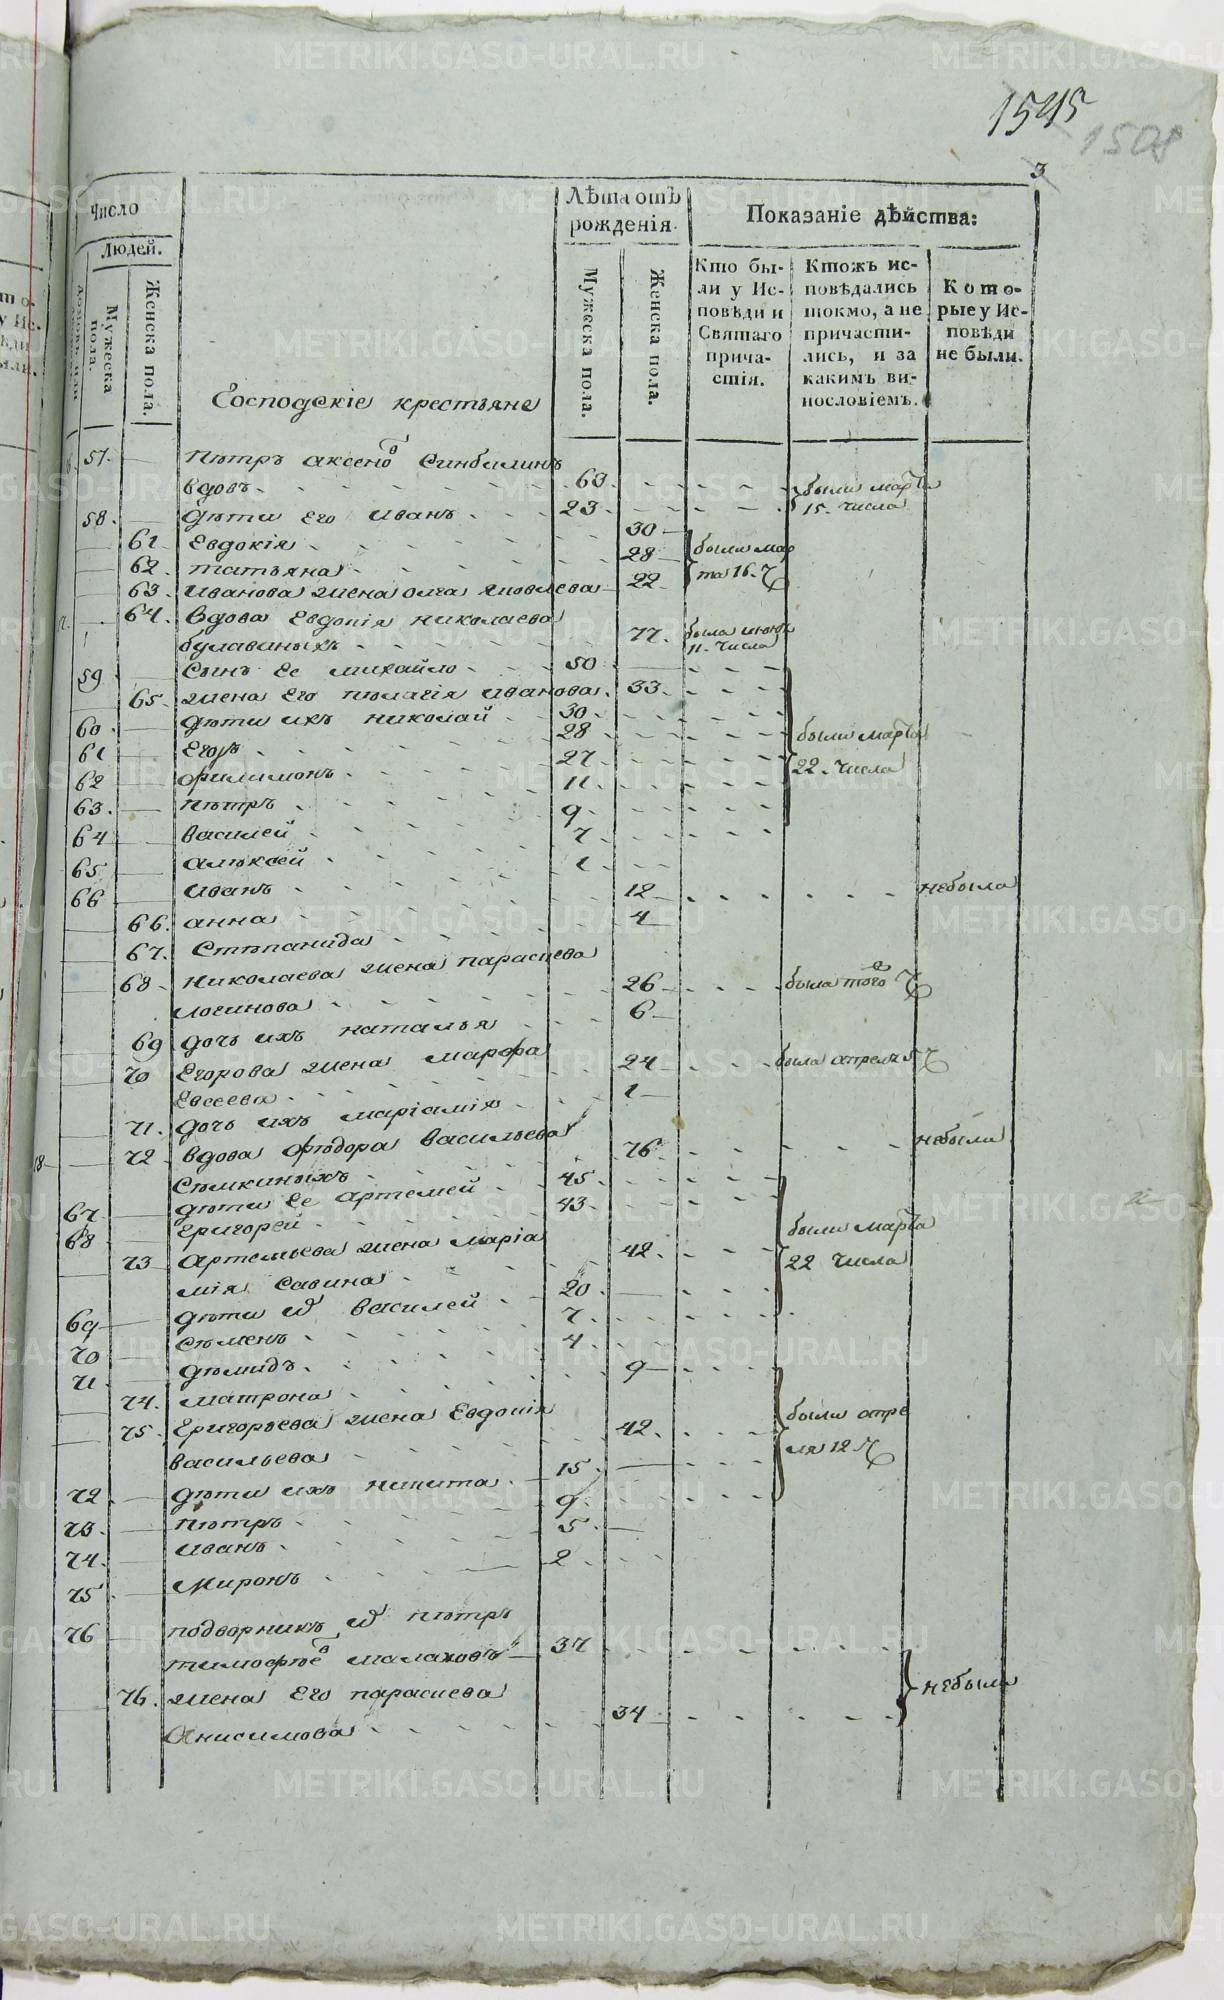 1545
1508
3
Число
Людей.
Мужеска пола.
Женска пола.
Лѣта отъ рожденія.
Мужеска пола.
Женска пола.
Показаніе дѣйства:
Кто бы-
ли у Ис-
повѣди и
Святаго
прича-
стія.
Ктожъ ис-
повѣдались
токмо, а не
причасти-
лись, и за
какимъ ви-
нословіемъ.
Кото-
рые у Ис-
повѣди
не были.
Господскіе крестьяне
57. Пѣтръ аксено в
вдовъ 63. были марта
58. Дѣти его Иванъ 23 15. числа
61 Евдокія 30 были мар
62. татьяна 28 та 16. ч
63. Иванова жена олга яковлева 22
64. Вдова Евдокія николаева
77. была
11. числа
59 Сынъ ее михайло 50
65. жена его пелагія иванова. 33
60 дѣти ихъ николай 30
61 Егоръ 28 были марта
62 филимонъ 27 22. числа
63. пѣтръ 11
64 василей 9
65 алѣксей 7
66 иванъ 1
66. анна 12 небыла
67. Стѣпанида 4
68. николаева жена парасиева
логинова 26 была того ч
69 дочь ихъ наталья 6
70 Егорова жена марфа
Евсеева 24 была апреля 5 ч
71. дочь ихъ маріамія 1
18 72 вдова фѣдора васильева
76 небыла
67 дѣти ее артемей 45
68 Григорей 43 были марта
73 Артемьева жена маріа
мія савина 42 22 числа
69 дѣти василей 20
70 сѣменъ 7
71 дѣмидъ 4
74. матрона 9
75. Григорьева жена Евдокія были апре
васильева 42 ля 12 ч
72 дѣти ихъ никита 15
73. пѣтръ 9
74. иванъ 5
75 Миронъ 2
76 подворникъ пѣтръ
тимофѣе в малаховъ 37
76. жена его парасиева небыли
Анисимова 34
METRIKI.GASO-URAL.RU